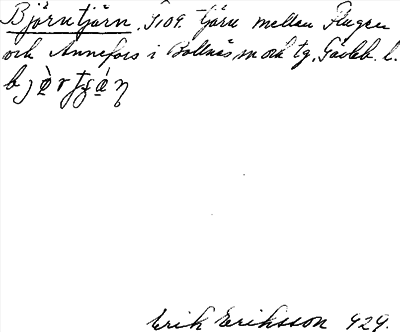 Björntjärn. S109. tjärn mellan Flugen
och Annefors i Bollnäs sn och tg. Gävleb. l.
Erik Eriksson 929.